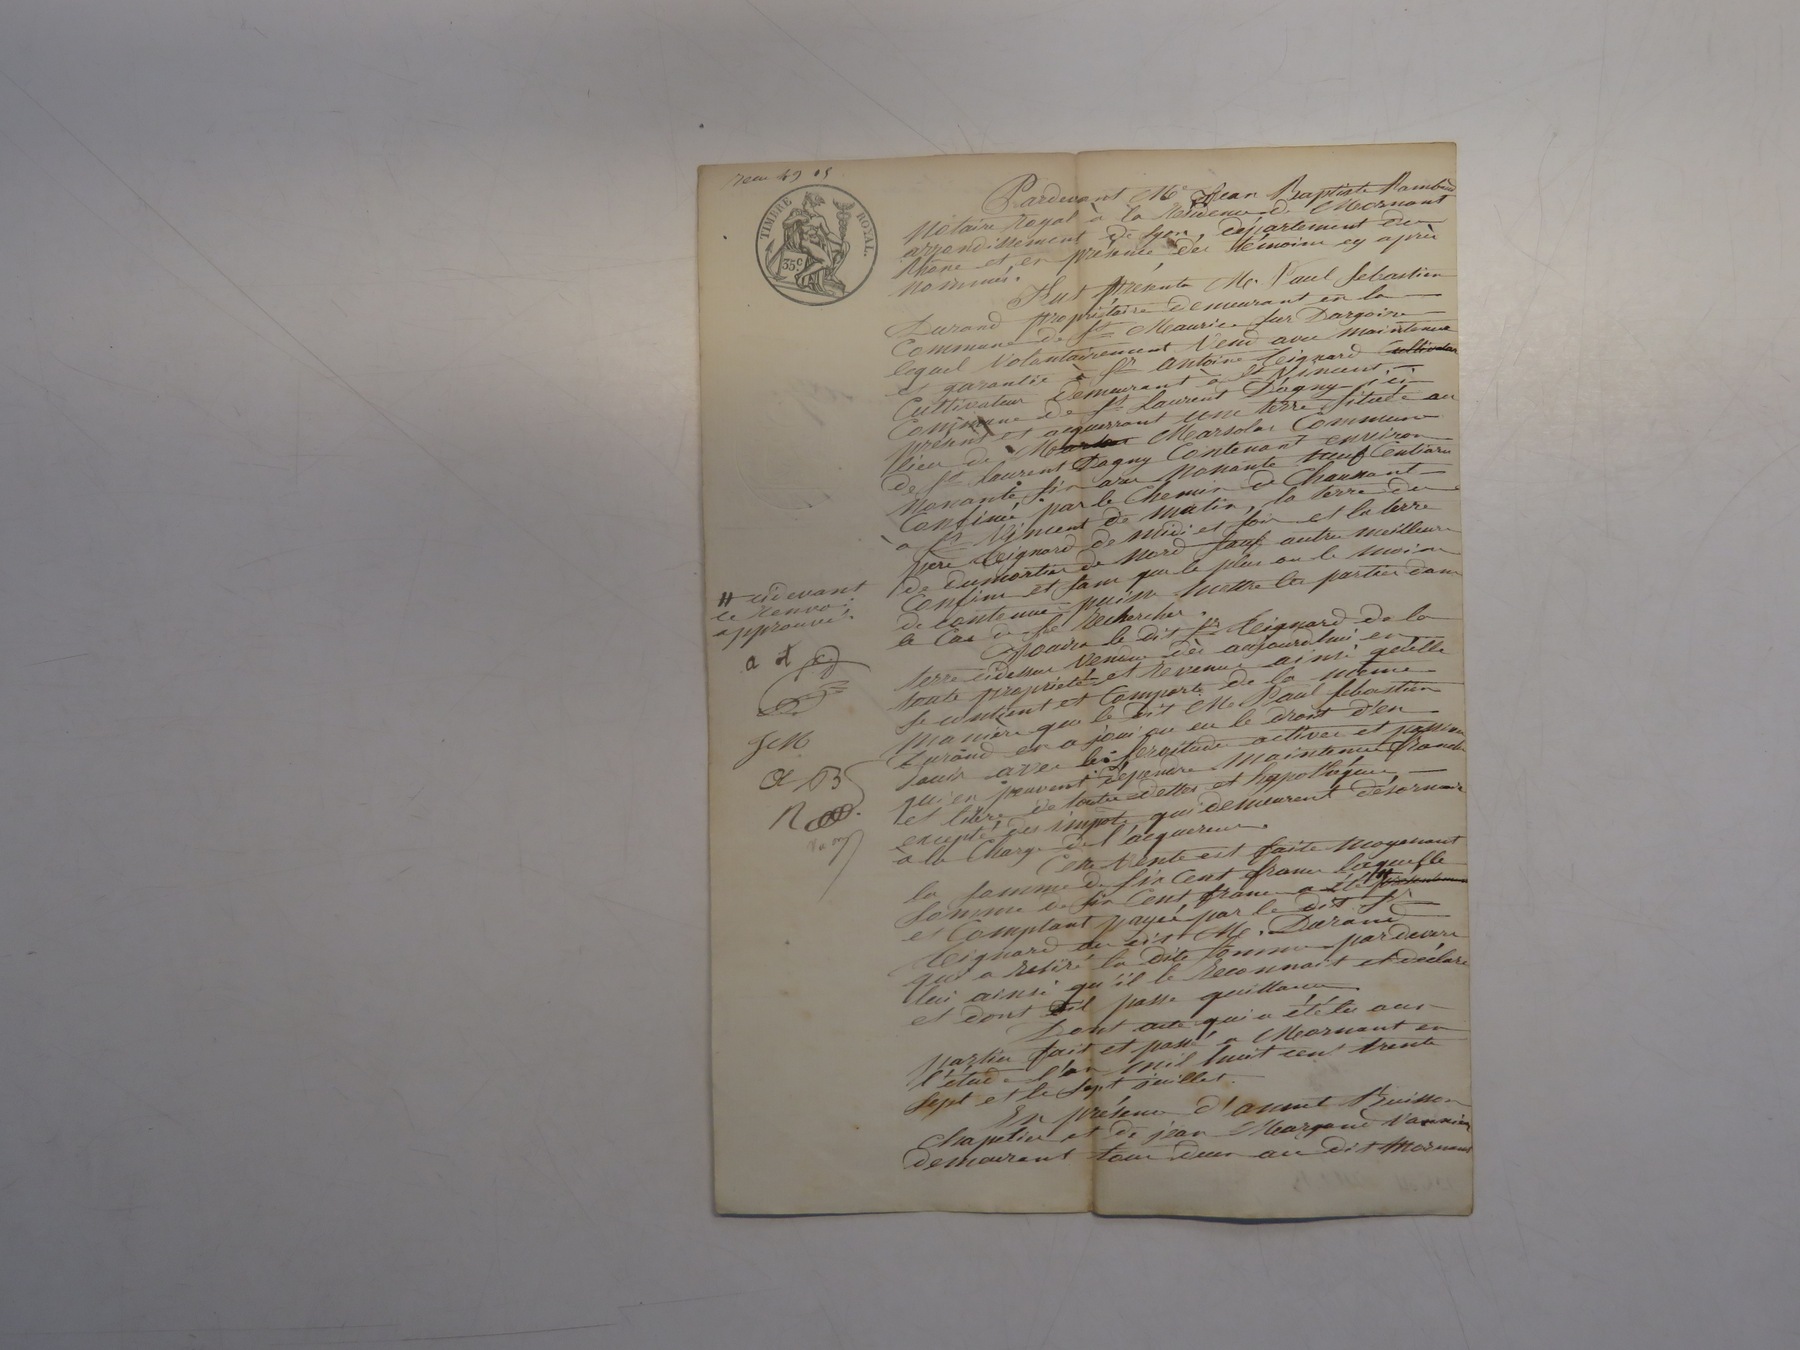 TIMBRE ROYAL
35 c
Pardevant Me Jean Baptiste Rambaud
Notaire Royal à la Résidence de Mornant
arrondissement de Lyon, département du
Rhône et en présence des témoins cy après
nommés.
Fut présent M. Paul Sebastien
Durand propriétaire demeurant en la
Commune de St Maurice sur Dargoire
lequel volontairement vend avec maintenue
et garantie à Sr Antoine Guignard Cultivateur
Cultivateur demeurant à St Vincent
Commune de St Laurent Dagny ici
présent et acquerrant une terre située au
lieu de Marsolas Commune
de St Laurent Dagny Contenant environ
Nonante six ares Nonante neuf Centiares
Confinée par le Chemin de Chaussant
à St Vincent de matin, la terre du
père Guignard de midi et soir et la terre
de Dumortier de Nord sauf autre meilleurs
Confins et sans que le plus ou le moins
de contenue puisse mettre les parties dans
le Cas de se rechercher.
Jouira le dit Sr Guignard de la
terre cidessus vendue dès aujourdhui en
toute propriété et revenus ainsi qu'elle
se contient et Comporte de la même
Manière que le dit M. Paul Sebastien
Durand en a joui ou eu le droit d'en
Jouir avec les servitudes actives et passives
qui en peuvent dépendre Maintenue franche
et libre de toutes dettes et hypothèques
excepté des impots qui demeurent désormais
à la Charge de l'acquereur.
Cette Vente est faite Moyennant
la somme de six Cent francs laquelle
somme de six Cent francs a été #
et Comptant payée par le dit Sr
Guignard au dit M. Durand
qui a retiré la dite somme pardevers
lui ainsi qu'il le Reconnait et déclare
et dont il passe quittance.
Dont acte qui a été lu aux
parties fait et passé à Mornant en
l'étude l'an mil huit cent trente
sept et le sept juillet.
En présence d'annet Buisson
Chapelier et de jean Margand Vannier
demeurant tous deux au dit Mornant
# cidevant
le Renvoi
approuvé.